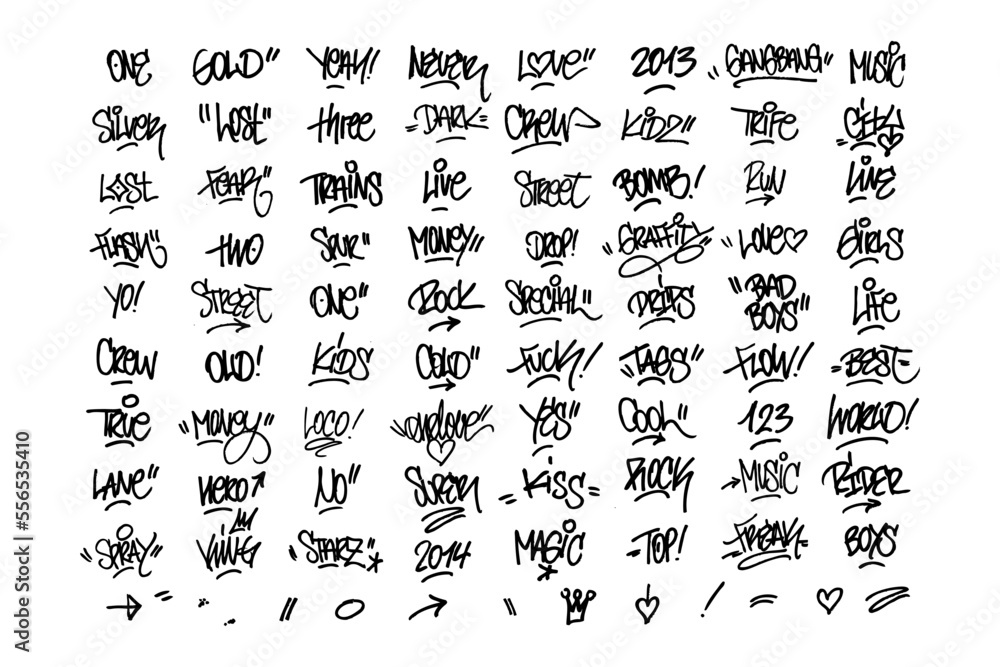 ONE GOLD" YEAH! NEVER LOVE" 2013 "GANGBANG" MUSIC
SILVER "LOST" three =DARK= CREW KIDZ" TRIFE =CITY
LOST FEAR" TRAINS LIVE STREET BOMB! RUN LIVE
FLASH" TWO SPUR" MONEY" DROP! "GRAFFITY" "LOVE GIRLS
YO! STREET ONE" ROCK SPECIAL" DRIPS "BAD BOYS" LIFE
CREW OLD! KIDS COLD" FUCK! "TAGS" FLOW! =BEST=
TRUE "MONEY" LOCO! "onelove" YES" COOL" 123 WORLD!
LANE" HERO NO" SUPER =KISS= ROCK MUSIC RIDER
"SPRAY" KING "STARZ"* 2014 MAGIC* =TOP! =FREAK= BOYS
Adobe Stock | #556535410
Adobe Stock